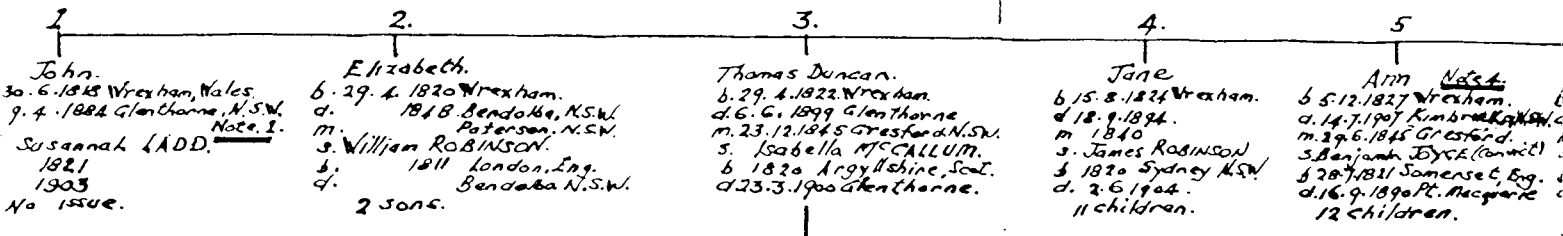 1
John.
30.6.1818 Wrexham, Wales.
9.4.1884 Glenthorne, N.S.W.
Note. 1.
Susannah LADD.
1821
1903
No issue.
2.
Elizabeth.
b. 29.4.1820 Wrexham.
d. 1848 Bendolba, N.S.W.
m. Paterson, N.S.W.
s. William ROBINSON.
b. 1811 London, Eng.
d. Bendolba N.S.W.
2 sons.
3.
Thomas Duncan.
b. 29.4.1822 Wrexham.
d. 6.6.1899 Glenthorne
m. 23.12.1845 Gresford N.S.W.
s. Isabella McCALLUM.
b 1820 Argyllshire, Scot.
d. 23.3.1900 Glenthorne.
4.
Jane
b 15.8.1824 Wrexham.
d 18.9.1894.
m 1840
s. James ROBINSON
b 1820 Sydney N.S.W
d. 2.6.1904.
11 children.
5
Ann Note
b 5.12.1827 Wrexham.
d. 14.7.1907 N.S.W.
m. 29.6.1845 Gresford.
s. Benjamin JOYCE (convict)
b 28.7.1821 Somerset, Eng.
d. 16.9.1890 Pt. Macquarie
12 children.